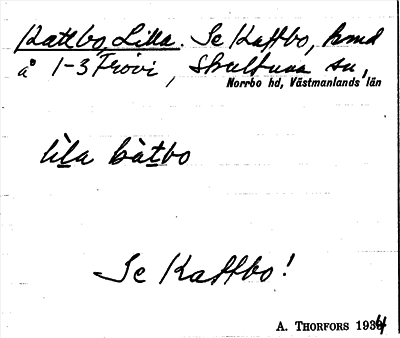 Kattbo, Lilla. Se Kattbo, hmd
å 1-3 Frövi, Skultuna sn,
Norrbo hd, Västmanlands län
lìla bàtbo
Se Kattbo!
A. THORFORS 1934